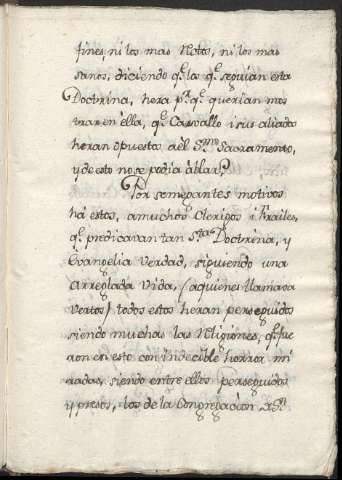 fines, ni los mas Rotos, ni los mas
sanos, diciendo q.e los q.e seguian esta
Doctrina, hera p.r q.e querian mos
trar en èlla, q.e Carvallo i sus aliados
heran opuestos aèl S.mo Sacramento,
y de esto no se podia àblar,
Por semegantes motivos
há estos, amuchos Clerigos i Frailes,
q.e predicavan tan S.ta Doctrina, y
Evangelia verdad, siguiendo una
Arreglada vida, (aquienes llamava
veatos) todos estos heran perseguidos
siendo muchas las Religiones, q.e fue
ron en esto con indecible horror mi
radas, siendo entre ellos perseguidos
y presos, los de la Congregacion de S.n